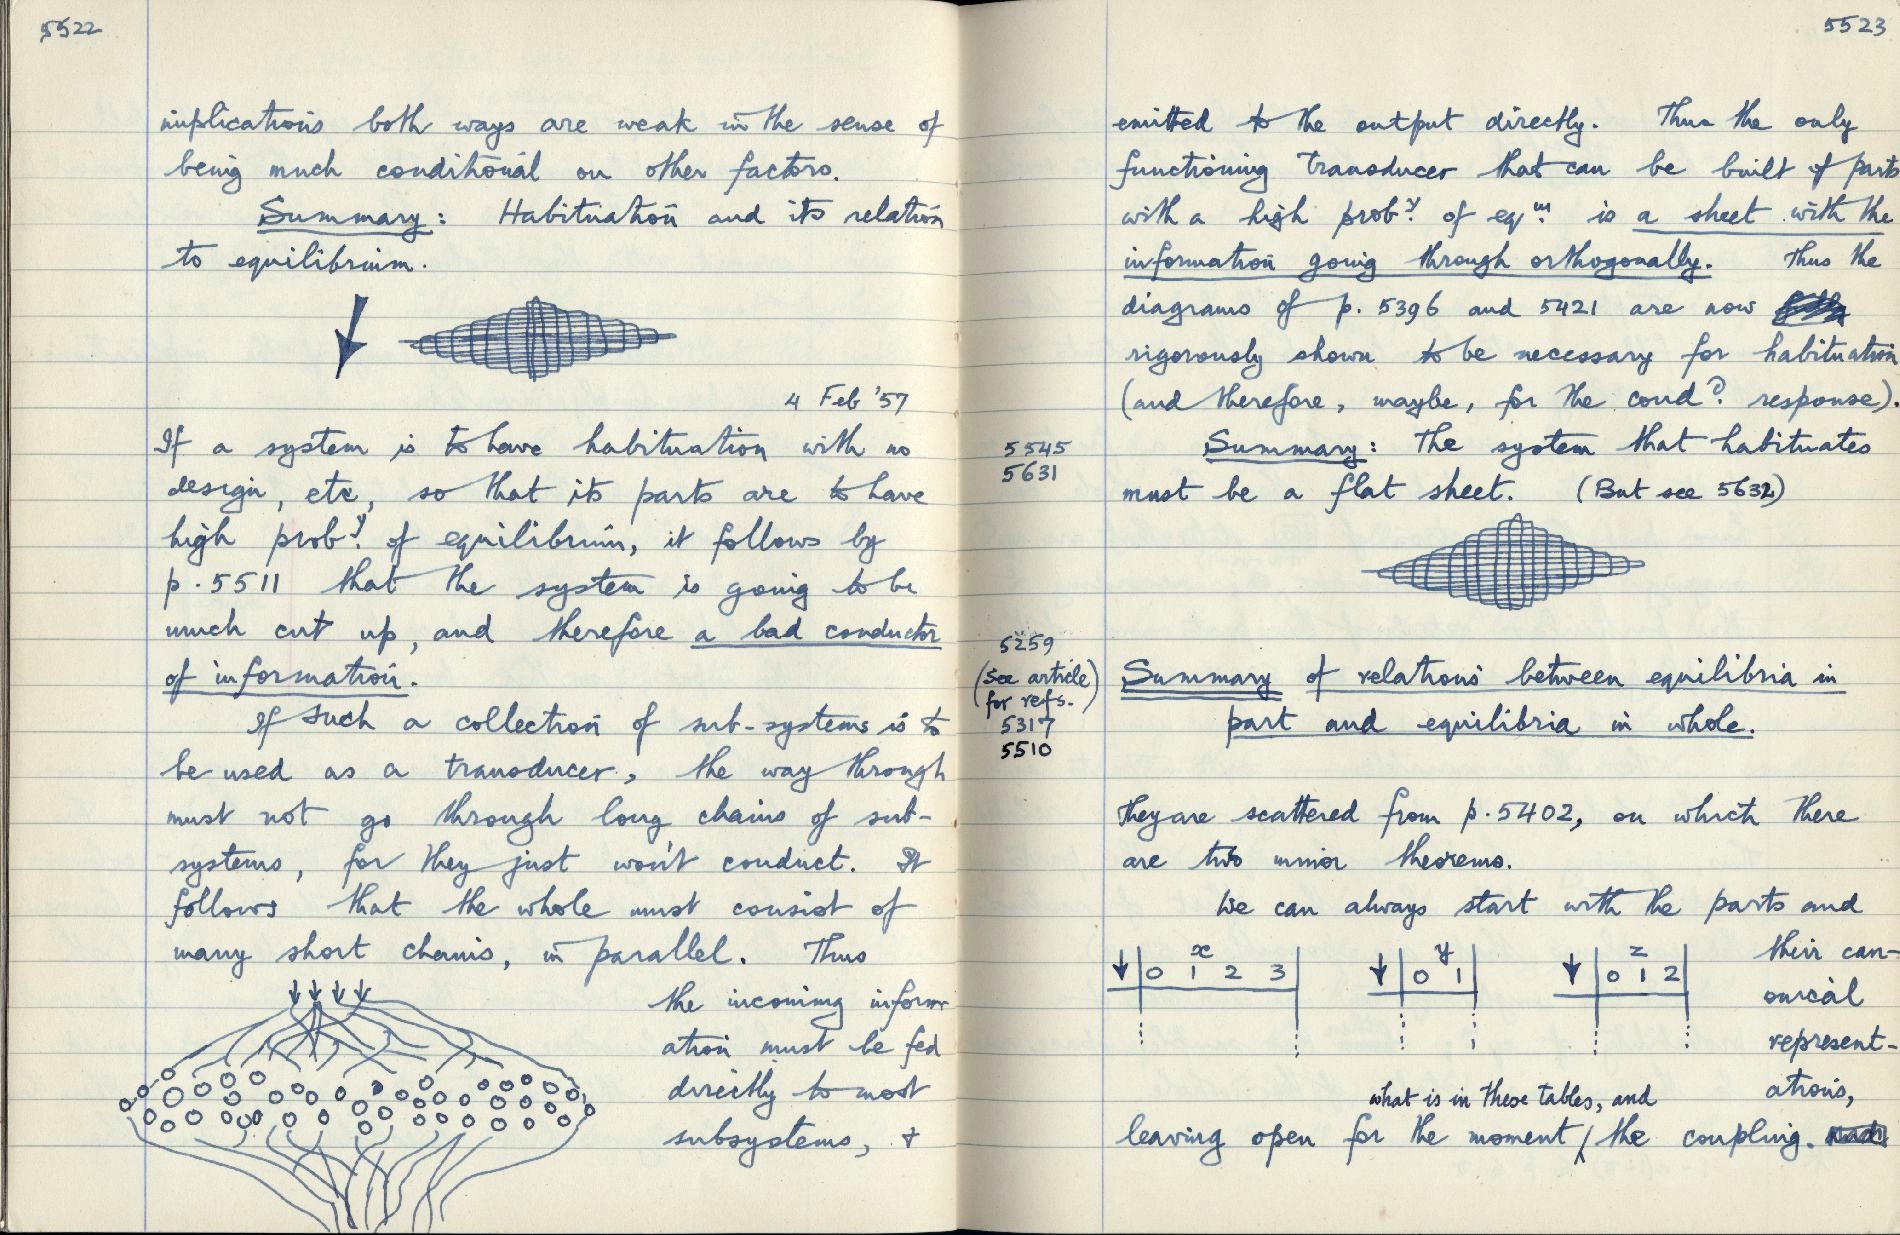 5522
implications both ways are weak in the sense of
being much conditional on other factors.
Summary: Habituation and its relation
to equilibrium.
4 Feb '57
If a system is to have habituation with no
design, etc, so that its parts are to have
high prob.y of equilibrium, it follows by
p. 5511 that the system is going to be
much cut up, and therefore a bad conductor
of information.
If such a collection of sub-systems is to
be used as a transducer, the way through
must not go through long chains of sub-
systems, for they just won't conduct. It
follows that the whole must consist of
many short chains, in parallel. Thus
the incoming inform-
ation must be fed
directly to most
subsystems, +
5523
emitted to the output directly. Thus the only
functioning transducer that can be built of parts
with a high prob.y of eq.m is a sheet with the
information going through orthogonally. Thus the
diagrams of p. 5396 and 5421 are now
rigorously shown to be necessary for habituation
(and therefore, maybe, for the cond.d response).
5545
5631
Summary: The system that habituates
must be a flat sheet. (But see 5632)
5259
(See article
for refs.)
5317
5510
Summary of relations between equilibria in
part and equilibria in whole.
They are scattered from p. 5402, on which there
are two minor theorems.
We can always start with the parts and
their can-
onical
represent-
ations,
x
↓ 0 1 2 3
y
↓ 0 1
z
↓ 0 1 2
what is in these tables, and
leaving open for the moment / the coupling.